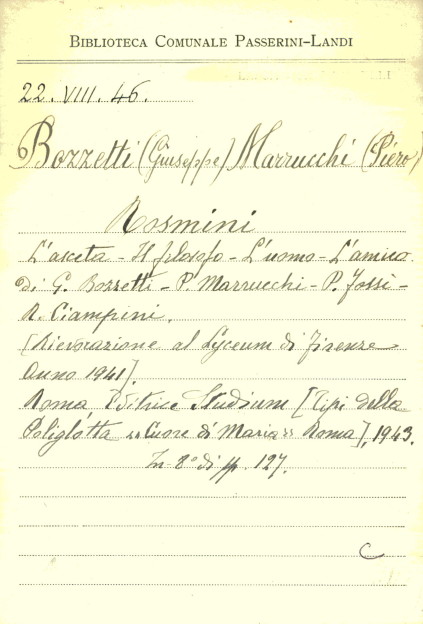 BIBLIOTECA COMUNALE PASSERINI-LANDI
22. VIII. 46.
Bozzetti (Giuseppe) Marrucchi (Piero)
Rosmini
L'asceta - Il filosofo - L'uomo - L'amico.
di G. Bozzetti - P. Marrucchi - P. Jossi -
R. Ciampini.
[Rievocazione al Lyceum di Firenze
Anno 1941].
Roma Editrice Studium [Tipi della
Poliglotta "Cuore di Maria" Roma], 1943.
In 8° di pp. 127.
C